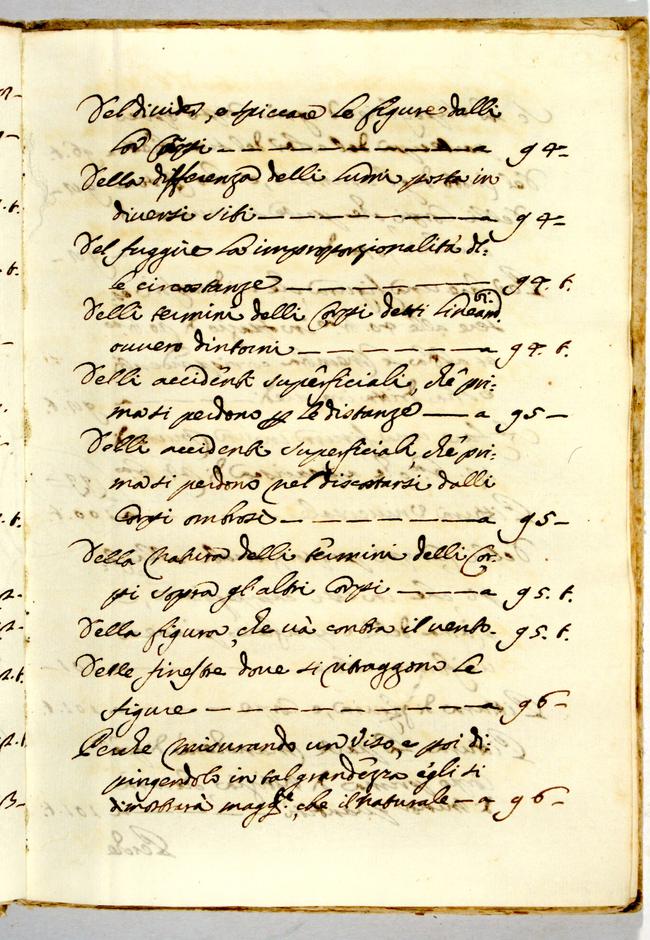 Del divider, e spiccare le figure dalli
lor Corpi - - - - - - - a 94-
Della differenza delli lumi posta in
diversi siti - - - - - - a 94-
Del fuggire la improportzionalità dl:
le circostanze - - - - - a 94. t.
Delli termini delli Corpi detti Lineam.ti
ouuero dintorni - - - - - a 94. t.
Delli accidenti superficiali, che pri:
ma si perdono p le distanze - - a 95-
Delli accidenti superficiali, che pri:
ma si perdono nel discostarsi dalli
Corpi ombrosi - - - - - a 95-
Della Natura delli termini delli Cor:
pi sopra gl'altri Corpi - - - a 95. t.
Della figura, che và contra il vento. 95. t.
Delle finestre doue si ritraggono le
figure - - - - - - - - a 96-
Perche misurando un Viso, e poi di:
pingendolo in tal grandezza egli si
dimostrarà magg.re, che il Naturale - a 96-